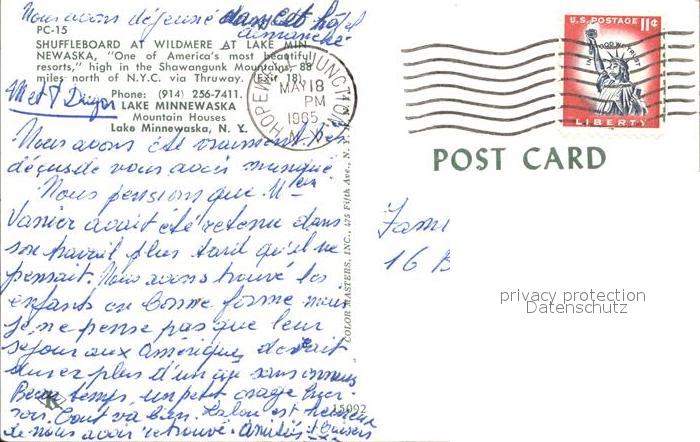 Nous avons déjeuné dans cet hôtel
dimanche
PC-15
SHUFFLEBOARD AT WILDMERE AT LAKE MIN
NEWASKA, "One of America's most beautiful
resorts," high in the Shawangunk Mountains, 88
miles north of N.Y.C. via Thruway. (Exit 18).
Phone: (914) 256-7411.
LAKE MINNEWASKA
Mountain Houses
Lake Minnewaska, N. Y.
HOPEWELL JUNCTION
MAY 18
PM
1965
N.Y.
U.S. POSTAGE 11¢
IN GOD WE TRUST
LIBERTY
POST CARD
Nous avons été vraiment
déçus de vous avoir manqué
Nous pensions que
Vanier avait été retenu dans
son travail plus tard qu'il ne
pensait. Nous avons trouvé les
enfants en bonne forme mais
je ne pense pas que leur
séjour aux Amériques devait
durer plus d'un an sans ennuis
Beau temps, un petit orage hier
soir. Tout va bien. est heureux
de nous avoir retrouvé. Amitiés
COLOR MASTERS, INC., 475 Fifth Ave., N.Y.
15092
Fam
16 B
privacy protection
Datenschutz